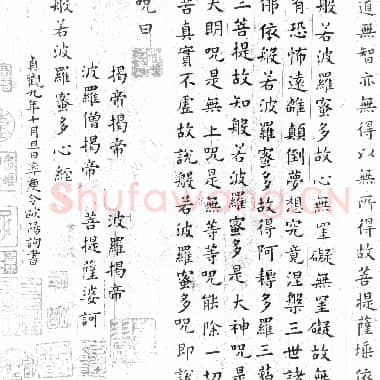 道無智亦無得以無所得故菩提薩埵依
般若波羅蜜多故心無罣礙無罣礙故無
有恐怖遠離顛倒夢想究竟涅槃三世諸
佛依般若波羅蜜多故得阿耨多羅三藐
三菩提故知般若波羅蜜多是大神咒是
大明咒是無上咒是無等等咒能除一切
苦真實不虛故說般若波羅蜜多咒即說
咒曰
揭帝揭帝 波羅揭帝
波羅僧揭帝 菩提薩婆訶
般若波羅蜜多心經
貞觀九年十月旦日率更令歐陽詢書
Shufawang.CN